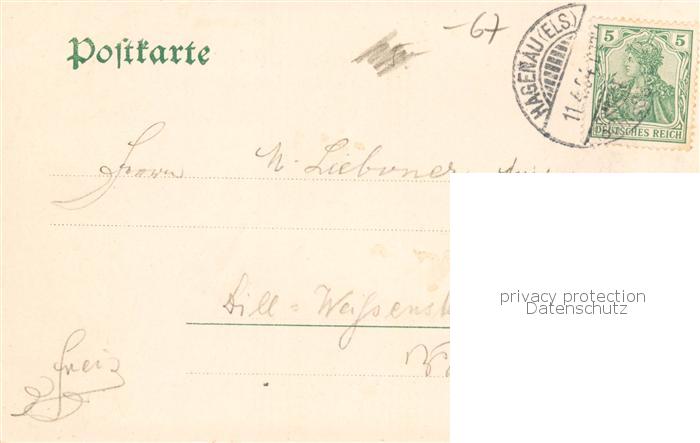 -67
Postkarte
HAGENAU (ELS)
11.4.04
5 5
DEUTSCHES REICH
Herrn
Dill=Weißenst
frei
privacy protection
Datenschutz